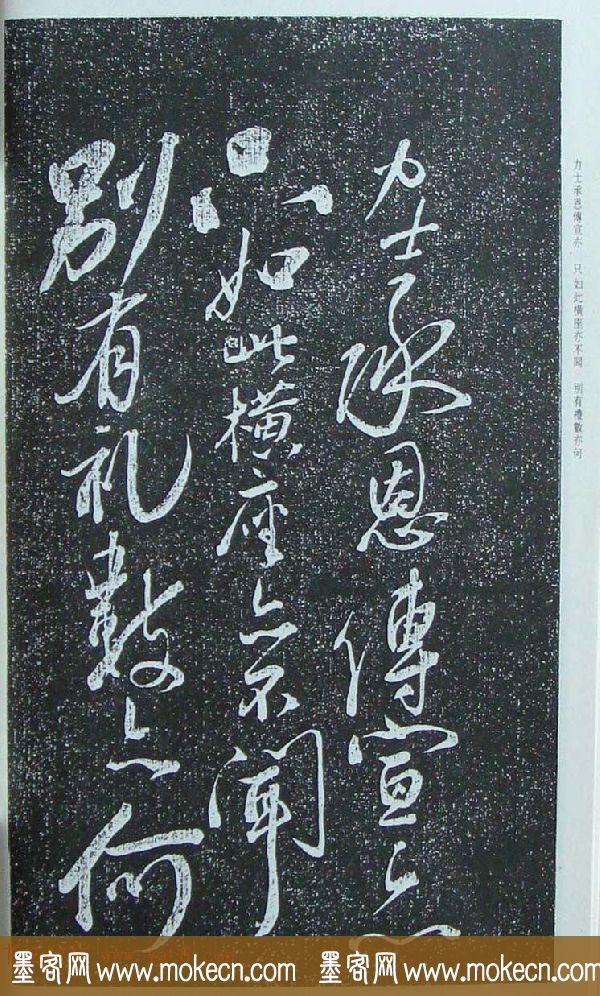 力士承恩傳宣亦
只如此橫座亦不聞
別有礼數亦何
力士承恩傳宣亦 只如此橫座亦不聞 別有禮數亦何
墨客网 www.mokecn.com 墨客网 www.mokecn.com